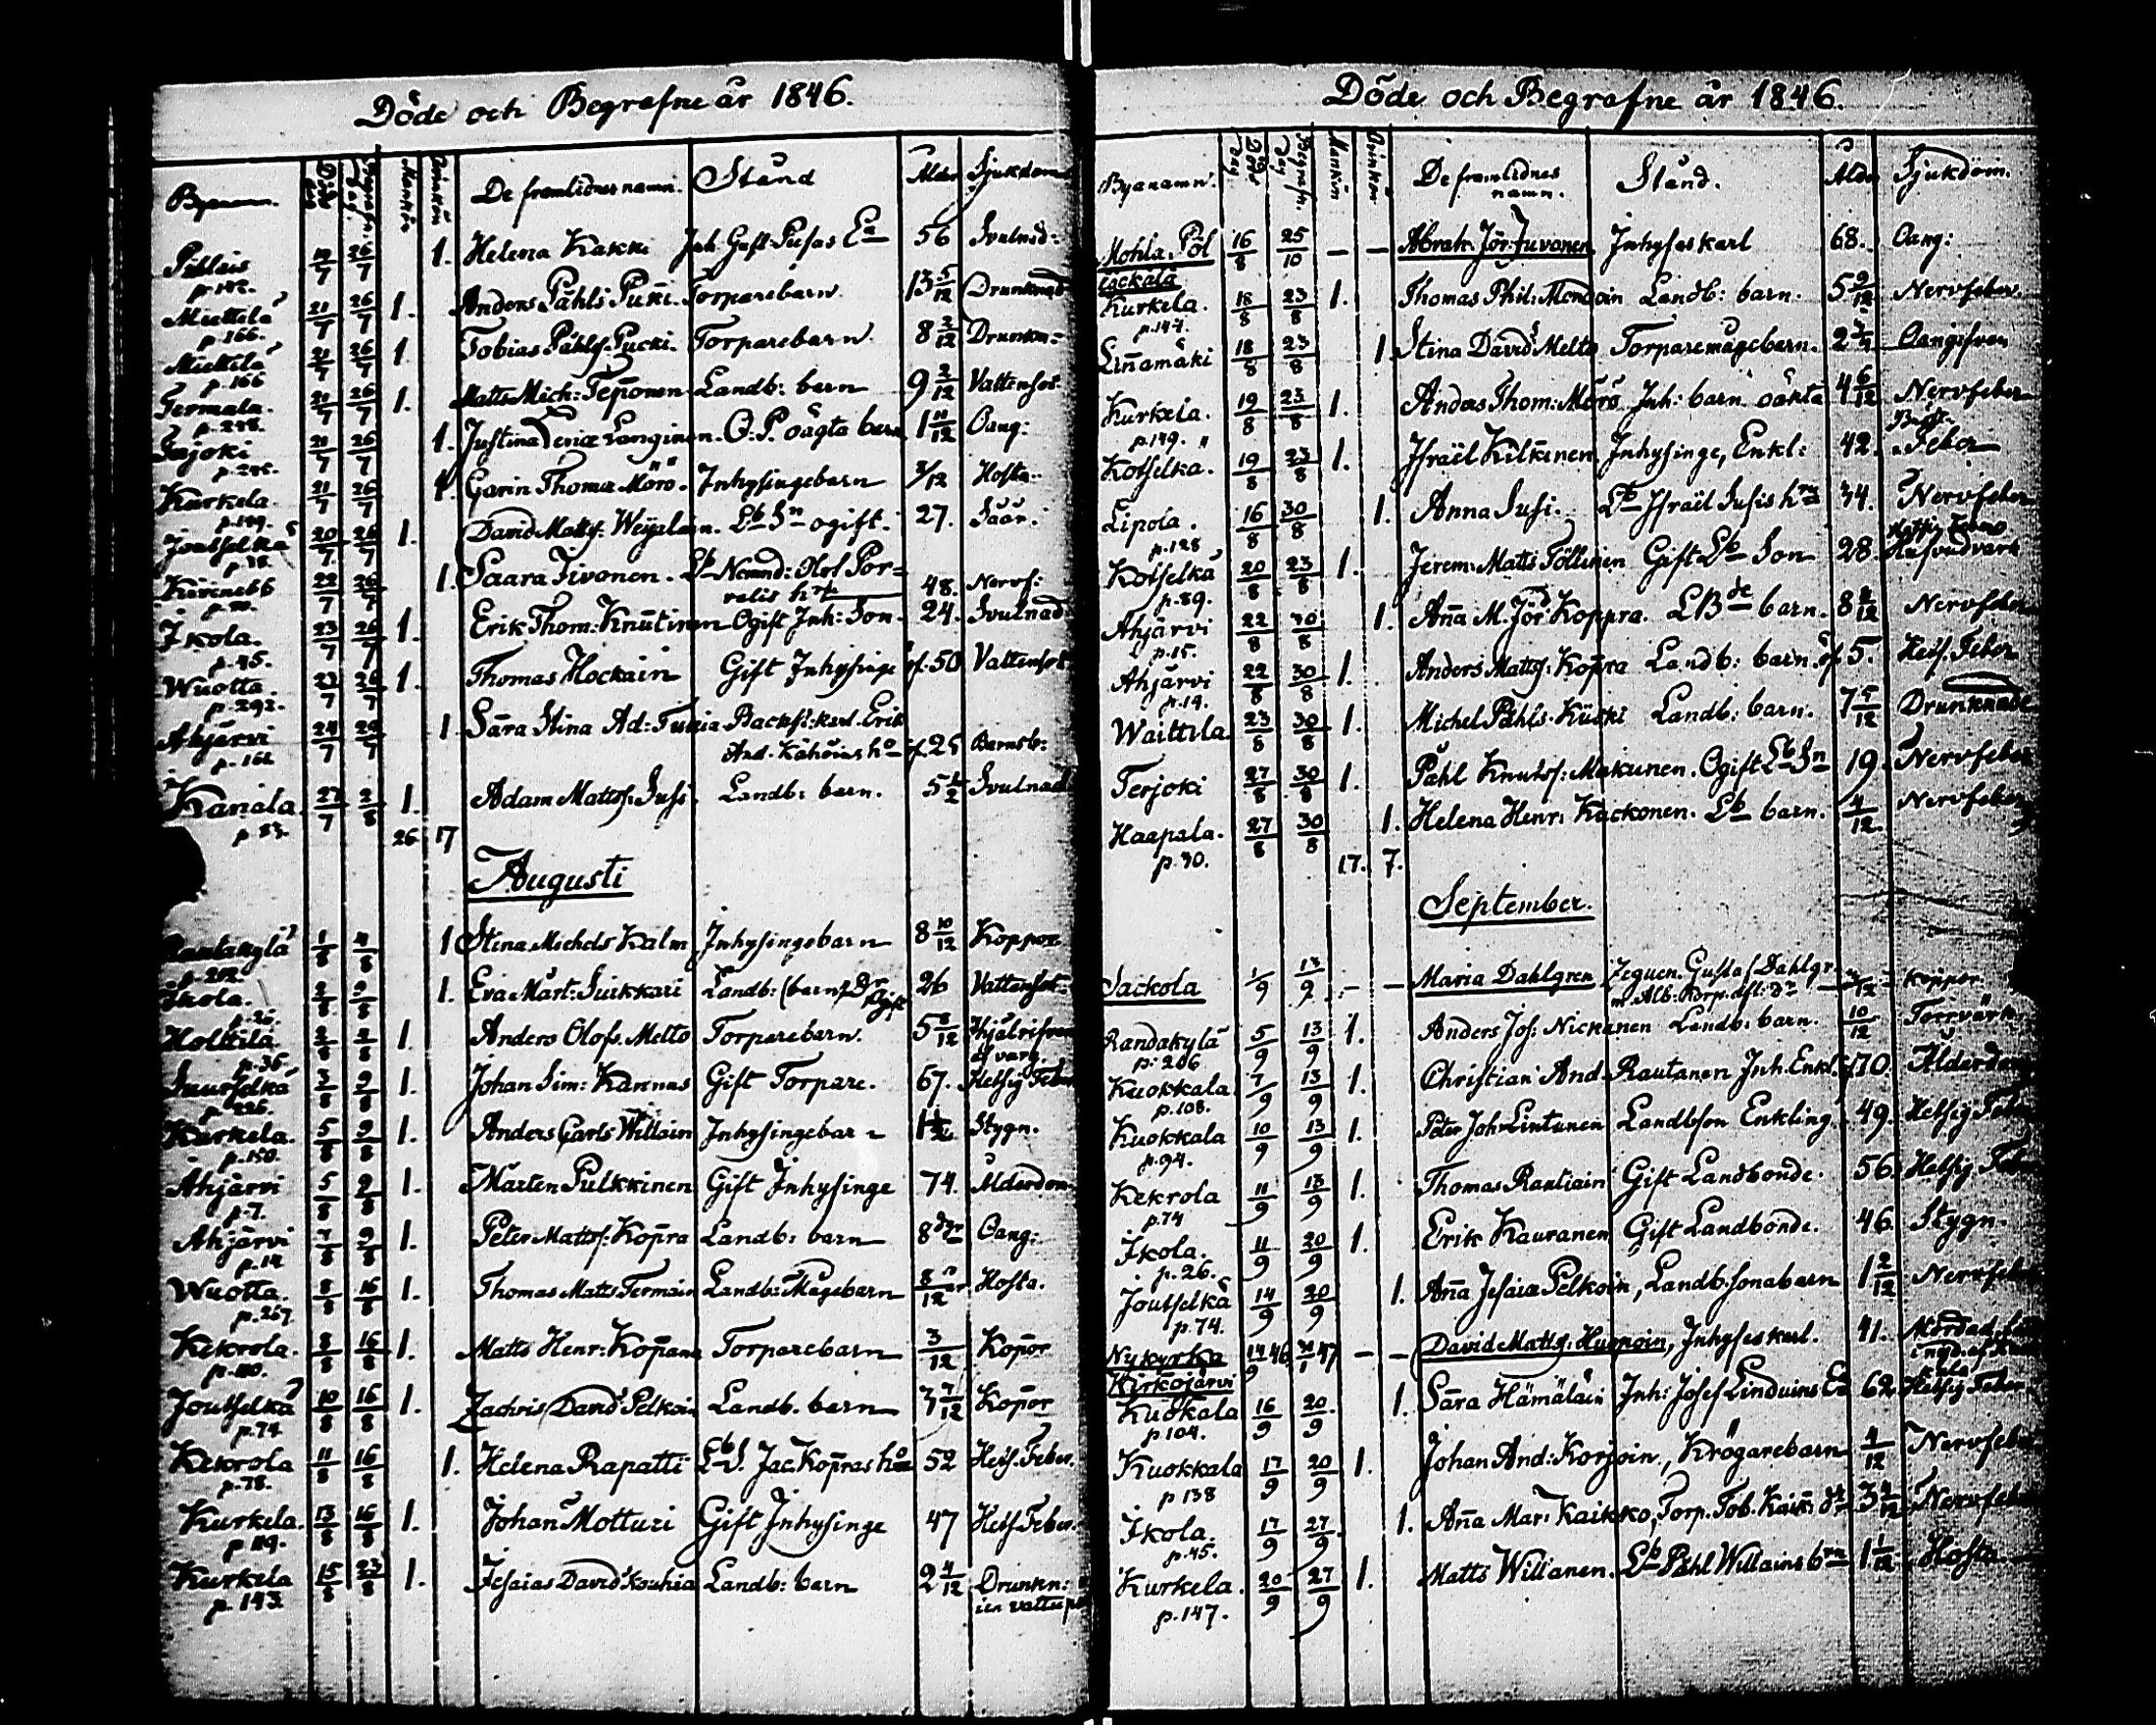 Döde och Begrafne år 1846.
De framlidnes namn. Stånd Ålder Sjukdom
p.142. 7 26/7 1. Helena Kakki Inh. Gust. Pusas Ea 56 Svulnad:
Miettilä p.166. 21/7 26/7 1. Anders Påhls Pucki. Torparebarn 13 5/12 Drunknad
Miettilä p.166 21/7 26/7 1. Tobias Påhls. Pucki. Torparebarn 8 2/12 Drunkn:
Termala. 21/7 26/7 1. Matts Mich: Teponen Landb: barn 9 2/12 Vattensot
21/7 26/7 1. Justina Langinen. O. P. oägta barn 1 11/12 Oang:
Kurkela. p.149. 21/7 26/7 1. Carin Thomæ Mörö. Inhysingebarn 3/12 Hosta.
Joutselkä p.78. 20/7 26/7 1. David Matts. Lb Sn ogift. 27. Saar.
22/7 26/7 1. Saara Tivonen. Lb Nemnd: Olof Por=
relis hu 48. Nervf:
Ikola. p.45. 23/7 26/7 1. Erik Thom: Knutinen Ogift Inh: Son. 24. Svulnad
Wuotta. p.292. 23/7 26/7 1. Thomas Hockain Gift Inhysinge 50 Vattensot
Ahjärvi 24/7 26/7 1 Sara Stina Ad: Backst: karl. Erik
And. Kähöins h 25 Barnsb:
Kanala. 27/7 2/8 1. Adam Matts: Susi. Landb: barn. 5 1/2 Svulnad
26 17
Augusti
Rautakylä p.202. 1/8 4/8 1 Stina Michels Kalm Inhysingebarn 8 10/12 Koppor
Ikola. p.26. 2/8 9/8 1. Eva Märt: Suikkari Landb: (barn) Dr 26 Vattensot:
Holttila p.36. 2/8 2/8 1. Anders Olofs. Melto Torparebarn. 5 8/12 af varg.
p.226. 3/8 9/8 1. Johan Sim: Kannus Gift Torpare. 67. Hetsig Feber
Kurkela. p.150. 5/8 9/8 1. Anders Carls Willain Inhysingebarn 1 Stygn.
Ahjärvi p.7. 5/8 9/8 1. Mårten Pulkkinen Gift Inhysinge 74. Ålderdom
Ahjärvi p.14 7/8 9/8 1. Peter Matts: Kopra Landb: barn 8 dgr Oang:
Wuotta. p.267. 8/8 16/8 1. Thomas Matts Termain Landb: Mågebarn 8/12 Hosta.
Kekrola. p.80. 8/8 16/8 1. Matts Henr: Kopana Torparebarn 3/12 Kopor
Joutselkä p.74 10/8 16/8 1. Zachris David Pelkoin Landb. barn 3 7/12 Kopor
Kekrola p.78. 11/8 16/8 1. Helena Rapatti Lb S. Jac. Kopras hu 52 Hets. Feber.
Kurkela. p.119. 13/8 16/8 1. Johan Motturi Gift Inhysinge 47 Hets. Feber.
Kurkela p.143 15/8 23/8 1. Jesaias David Kouhia Landb: barn 2 4/12 Drunkn:
Döde och Begrafne år 1846.
Byanamn. Döds dag Begrafn. dag Mankön Qvinkön De framlidnes namn. Stånd. Ålder Sjukdom.
Mohla, Pöl
läckälä 16/8 25/10 — — Abrah. Jör: Juvonen Inhyseskarl 68. Oang:
Kurkela. p.147. 18/8 23/8 1. Thomas Phil: Mondoin Landb: barn. 5 9/12 Nervfeber.
Linamäki 18/8 23/8 1 Stina David Melto Torparemågebarn. 2 Oangifven
Kurkela. p.149. 19/8 23/8 1. Anders Thom: Mörö Inh: barn oäkta 4 6/12 Nervfeber
Kotselka. 19/8 23/8 1. Israël Kilkinen Inhysinge, Enkl: 42. Feber
Lipola. p.128 16/8 30/8 1. Anna Susi. Lb Israël Susis hu 34. Nervfeber
Kotselkä p.89. 20/8 23/8 1. Jerem: Matts Töllinen Gift Lb Son 28. Hufvudvärk
Ahjärvi p.15. 22/8 30/8 1. Aña M. Jör Koppra. LBde barn. 8 2/12 Nervfeber
Ahjärvi p.14. 22/8 30/8 1. Anders Matts: Kopra Landb: barn. 5. Hets. Feber
Waittila 23/8 30/8 1. Michel Påhls. Kuski Landb: barn. 7 5/12 Drunknade
Terjoki 27/8 30/8 1. Påhl Knuts: Makunen. Ogift Lb Sn 19. Nervfeber
Haapala. p.30. 27/8 30/8 1. Helena Henr: Kackonen. Lb barn. 4/12. Nervfeber
17. 7.
September.
Sackola 1/9 13/9 — — Maria Dahlgren Gustaf Dahlgr. /12 koppor.
Randakylä p.206 5/9 13/9 1. Anders Jos: Nickanen Landb: barn. 10/12 Torrvärk
Kuokkala. p.108. 7/9 13/9 1. Christian And. Rautanen Inh. Enkl. 70. Ålderdom
Kuokkala p.94. 10/9 13/9 1. Peter Joh: Lintunen Landbson Enkling. 49. Hetsig Feber
Kekrola p.74 11/9 13/9 1. Thomas Rautiain Gift Landbonde. 56. Hetsig Feber
Ikola. p.26. 11/9 20/9 1. Erik Kauranen Gift Landbonde. 46. Stygn.
Joutselkä p.74. 14/9 20/9 1. Aña Jesaiæ Pelkoin, Landb. sonabarn 1 2/12 Nervfeber
Nykyrka
Kirkojärvi 14/9 46 /1 47 — — David Matts: Huopoin, Inhyseskarl. 41. Mördad,
Kuokala p.104. 16/9 20/9 1. Sara Hämäläin Inh: Josef Linduins Ea 62 Hetsig Feber
Kuokkala p 138 17/9 20/9 1. Johan And: Korjoin, Krögarebarn 4/12 Nervfeber
Ikola. p.45. 17/9 27/9 1. Aña Mar: Kaikko, Torp. Tob. Kaik: dr 3 Nervfeber
Kurkela. p.147. 20/9 27/9 1. Matts Willanen. Lb Påhl Willains brn 1 1/12 Hosta